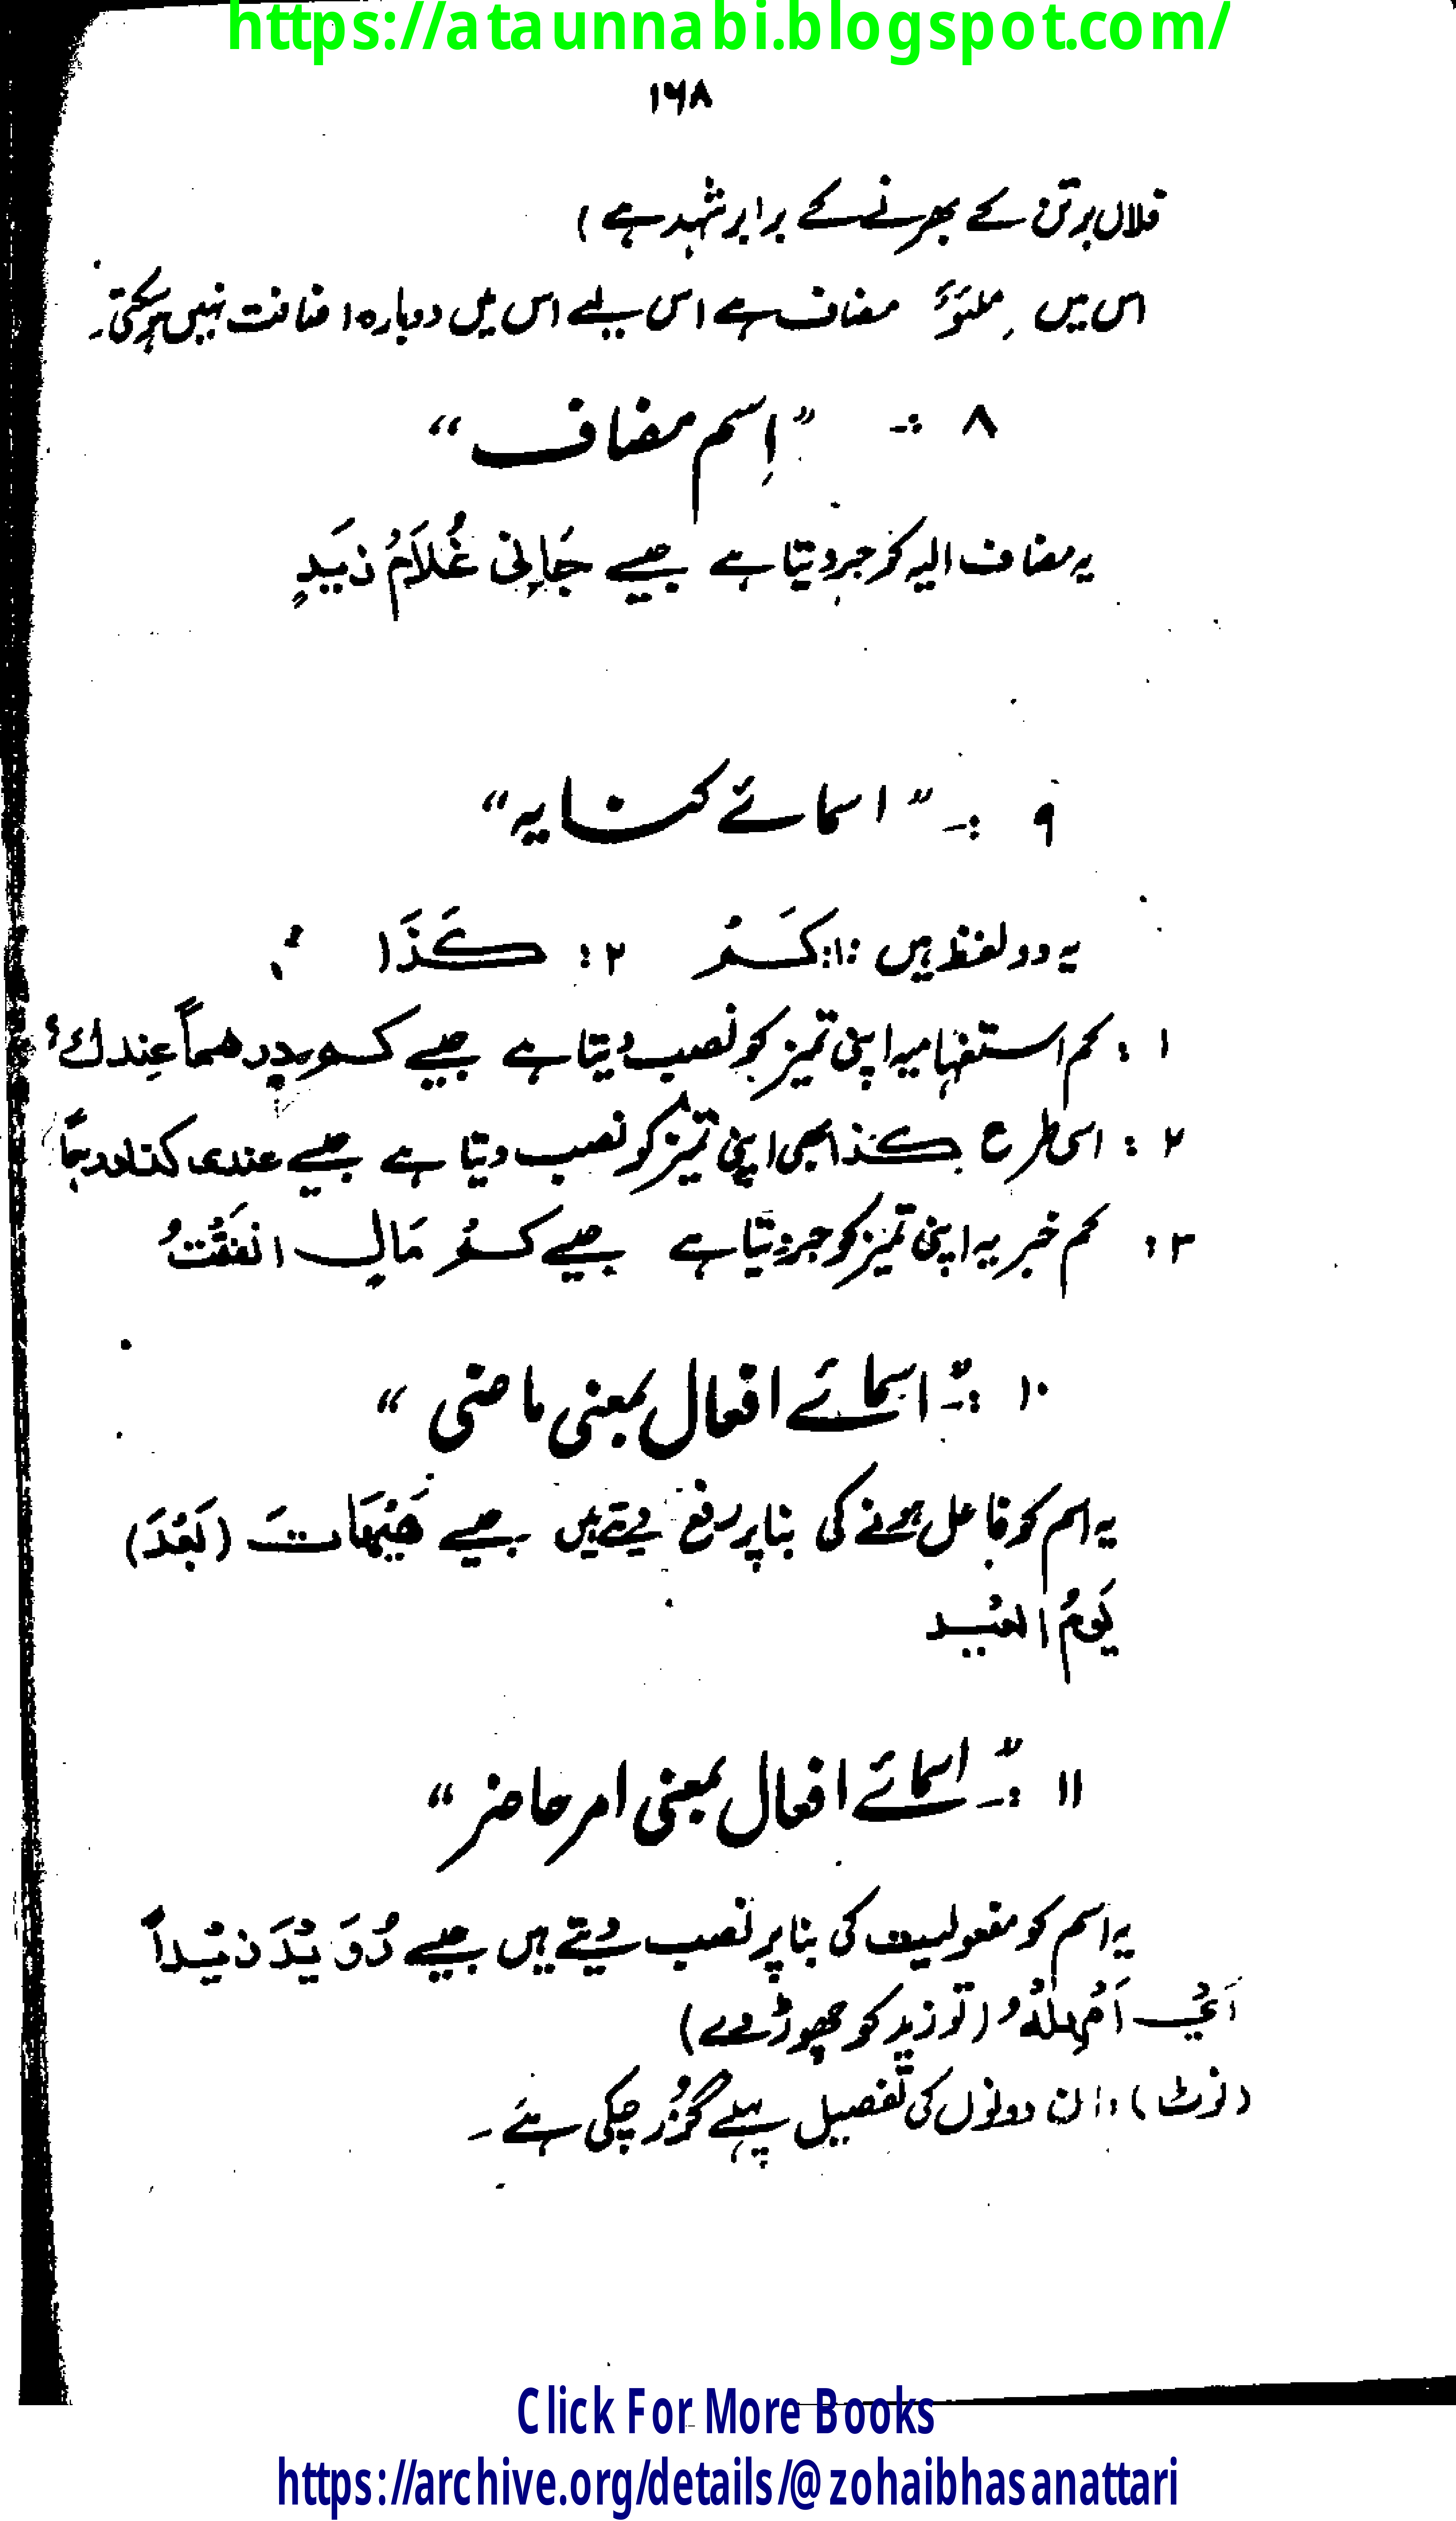 https://ataunnabi.blogspot.com/
۱۶۸
فلاں برتن کے بھرنے کے برابر شہد ہے )
اس میں ملئوُ مضاف ہے اس لیے اس میں دوبارہ اضافت نہیں ہوسکتی۔
۸ :- "اِسم مضاف"
یہ مضاف الیہ کو جر دیتا ہے جیسے جَاءنی غُلَامُ زَیدٍ
۹ :- "اسمائے کنایہ"
یہ دو لفظ ہیں :۱: کَمْ ۲: کَذَا
۱ : کم استفہامیہ اپنی تمیز کو نصب دیتا ہے جیسے کم درھماً عِندك؟
۲ : اسی طرح کذا بھی اپنی تمیز کو نصب دیتا ہے جیسے عندی کذا درہماً
۳: کم خبریہ اپنی تمیز کو جر دیتا ہے جیسے کمْ مَالٍ انفَقْتُ
۱۰ :- "اسمائے افعال بمعنی ماضی"
یہ اسم کو فاعل ہونے کی بنا پر رفع دیتے ہیں جیسے ھَیْھَاتَ (بَعُدَ)
یَومُ العیْد
۱۱ :- "اسمائے افعال بمعنی امر حاضر"
یہ اسم کو مفعولیت کی بنا پر نصب دیتے ہیں جیسے رُوَیْدَ زَیْداً
اَیْ اَمْہِلْہُ (تو زید کو چھوڑ دے)
(نوٹ) :ان دونوں کی تفصیل پہلے گزُر چکی ہے۔
Click For More Books
https://archive.org/details/@zohaibhasanattari